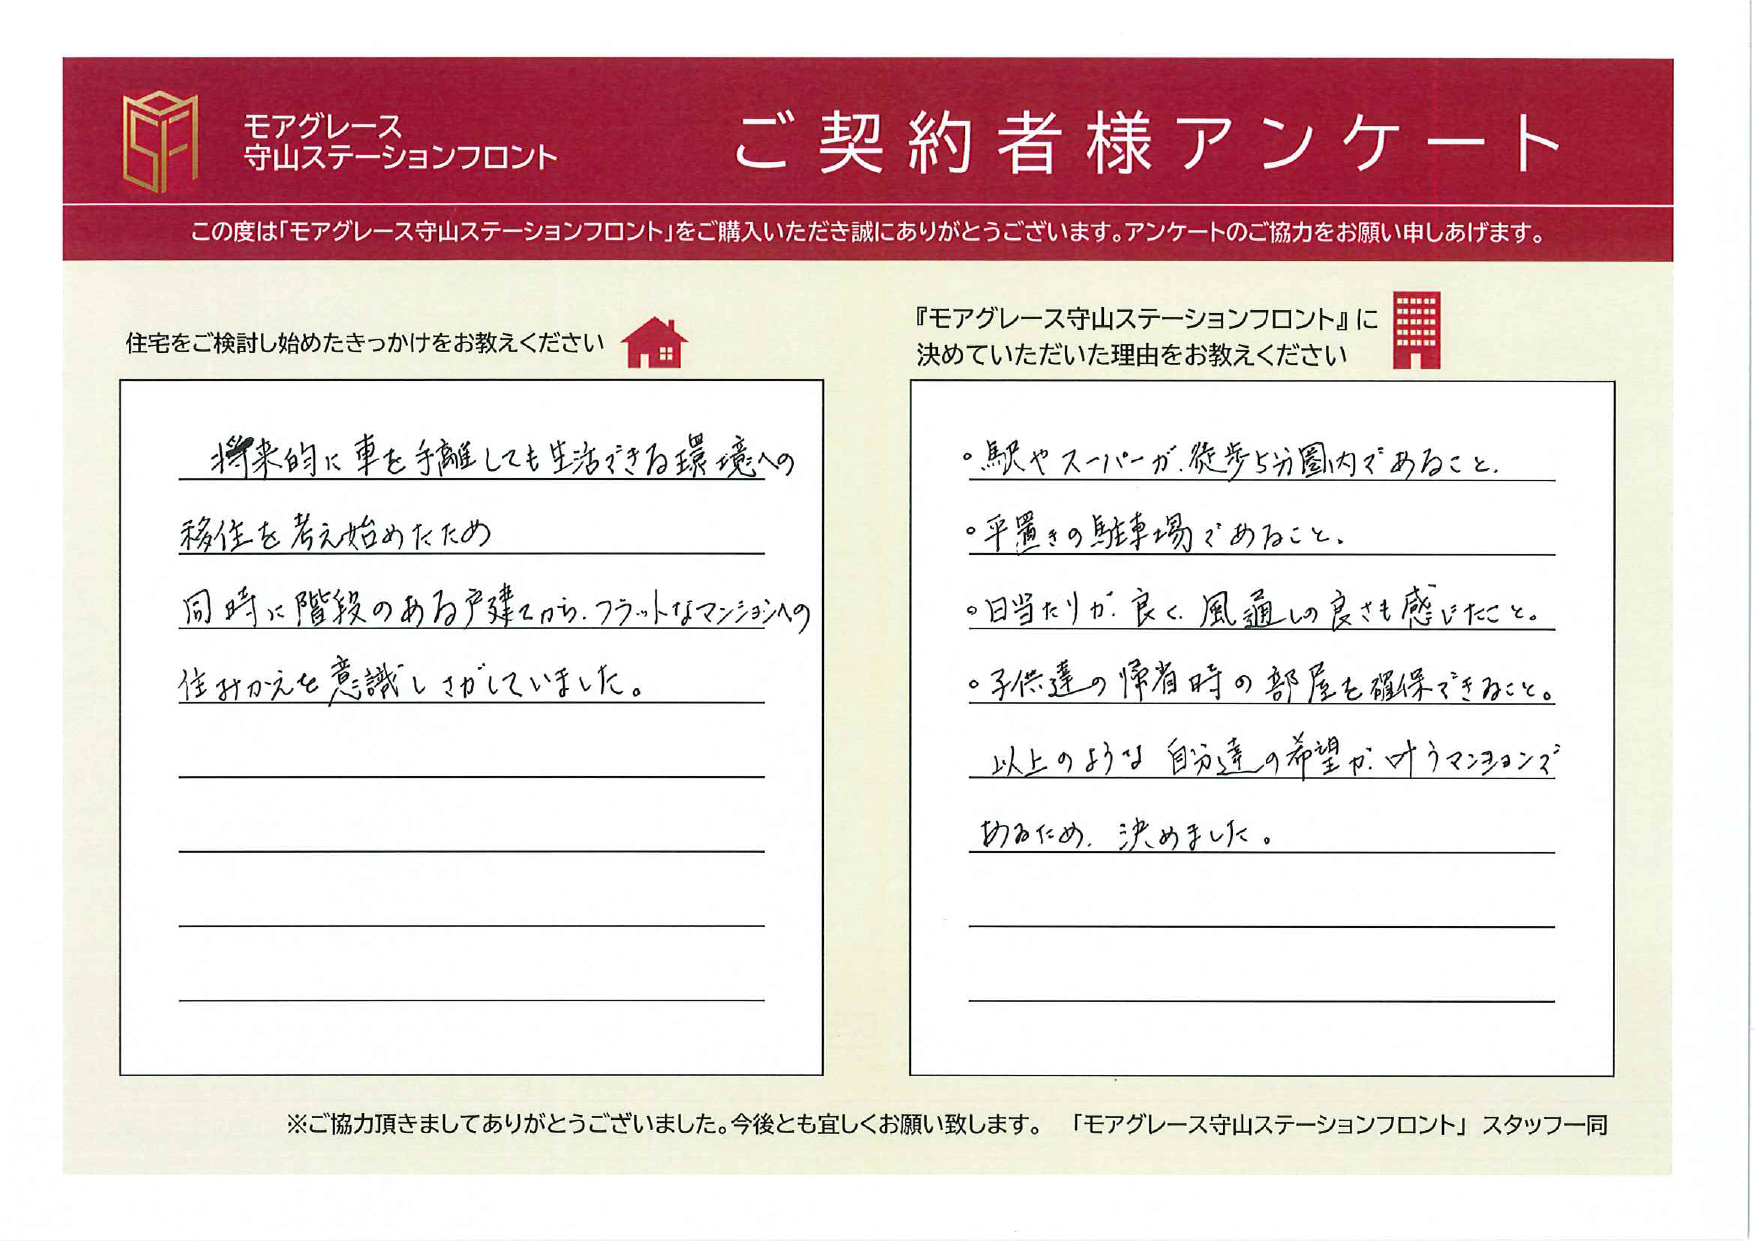 モアグレース
守山ステーションフロント
ご契約者様アンケート
この度は「モアグレース守山ステーションフロント」をご購入いただき誠にありがとうございます。アンケートのご協力をお願い申しあげます。
住宅をご検討し始めたきっかけをお教えください
将来的に車を手離しても生活できる環境への
移住を考え始めたため
同時に階段のある戸建てから、フラットなマンションへの
住みかえを意識しさがしていました。
『モアグレース守山ステーションフロント』に
決めていただいた理由をお教えください
。駅やスーパーが、徒歩5分圏内であること、
。平置きの駐車場であること、
。日当たりが良く、風通しの良さも感じたこと。
。子供達の帰省時の部屋を確保できること。
以上のような自分達の希望が叶うマンションで
あるため、決めました。
※ご協力頂きましてありがとうございました。今後とも宜しくお願い致します。 「モアグレース守山ステーションフロント」 スタッフ一同